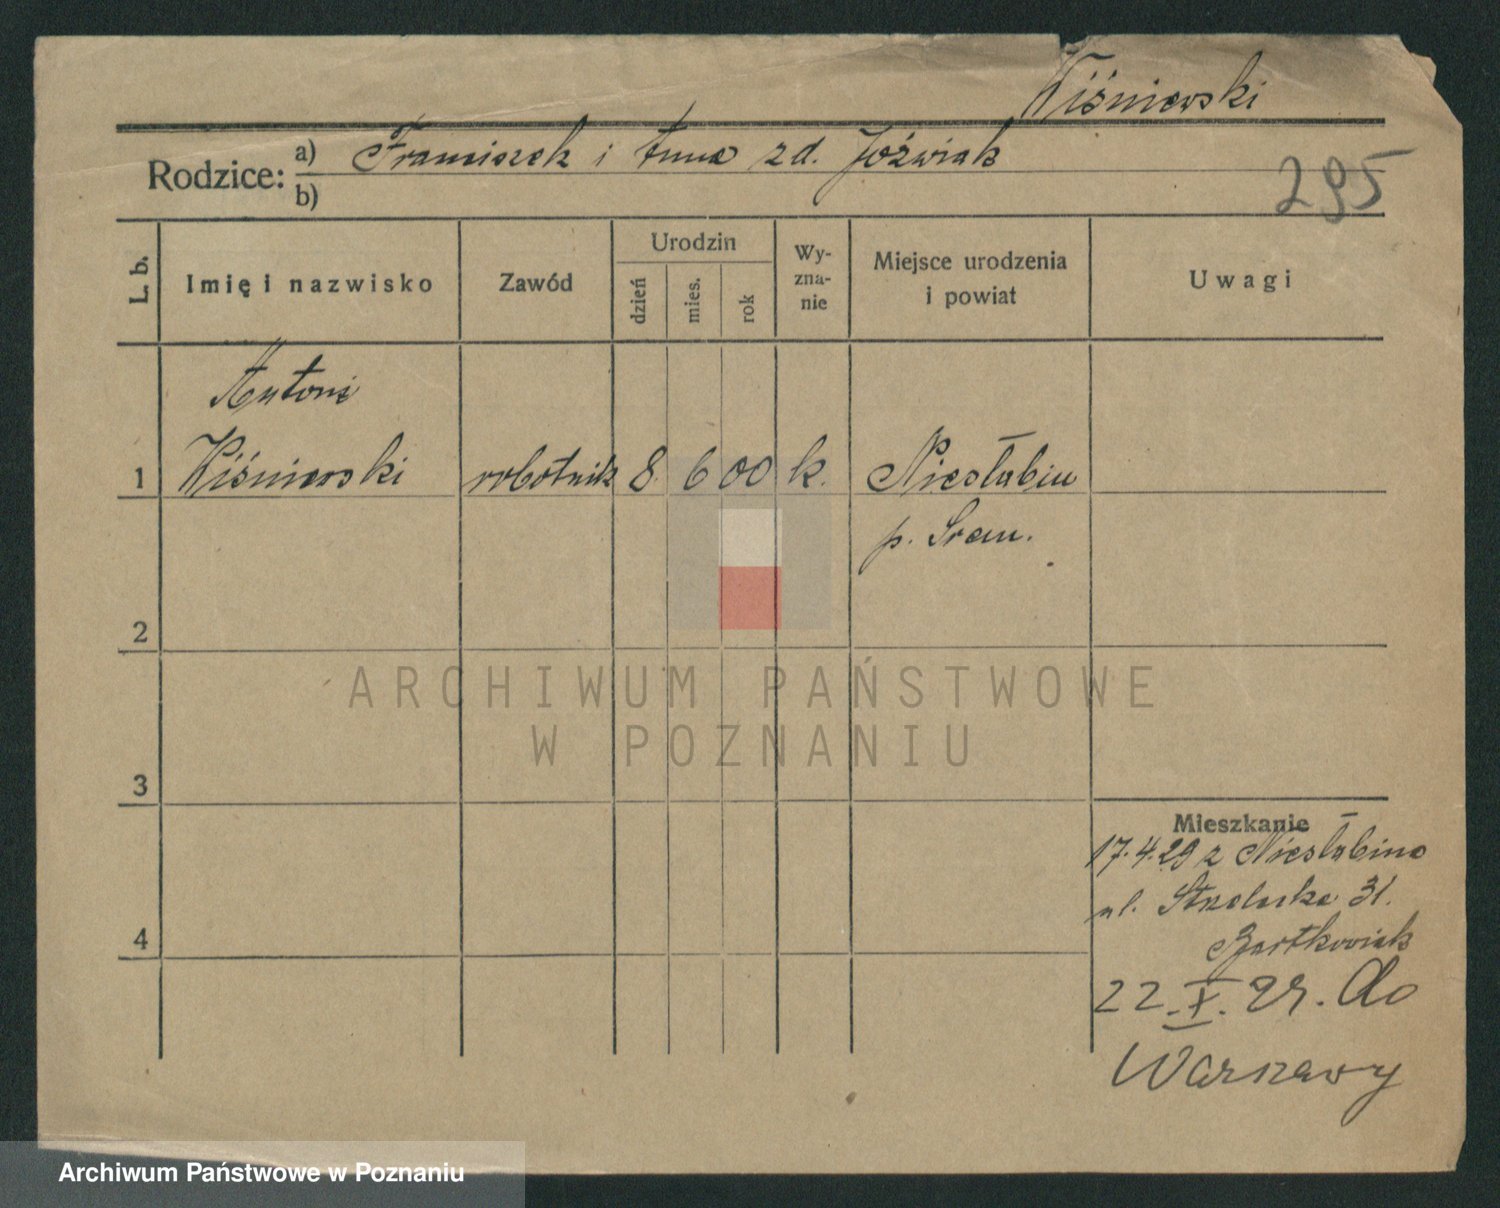 Wiśniewski
Rodzice: a) Franciszek i Anna zd. Jóźwiak
b)
295
L. b. Imię i nazwisko Zawód Urodzin dzień mies. rok Wy-zna-nie Miejsce urodzenia i powiat Uwagi
Antoni
1 Wiśniewski robotnik 8 6 00 k. Niesłabin
p. Śrem.
2
ARCHIWUM PAŃSTWOWE
W POZNANIU
3
Mieszkanie
17.4.29 z Niesłabina
ul. Strzelecka 31.
4 Bartkowiak
22.X.29. do
Warszawy
Archiwum Państwowe w Poznaniu